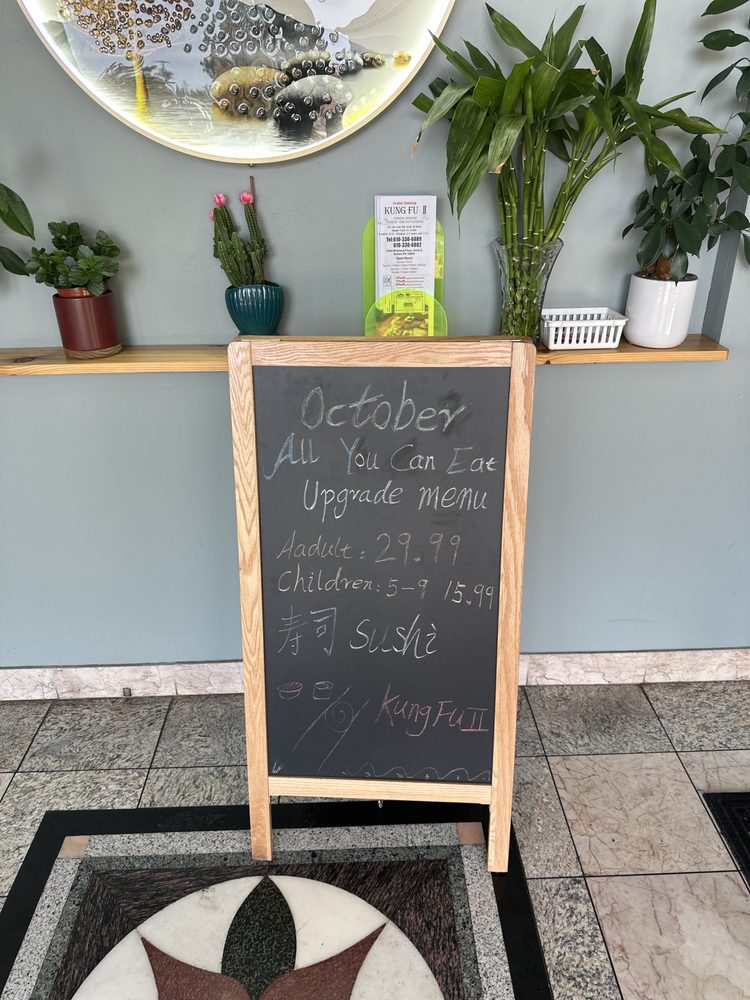 Grand Opening
KUNG FU II
Tel:610-330-6889
610-330-6882
Open Hours
October
All You Can Eat
Upgrade menu
Aadult: 29.99
Children: 5-9 15.99
寿司 Sushi
Kung Fu II